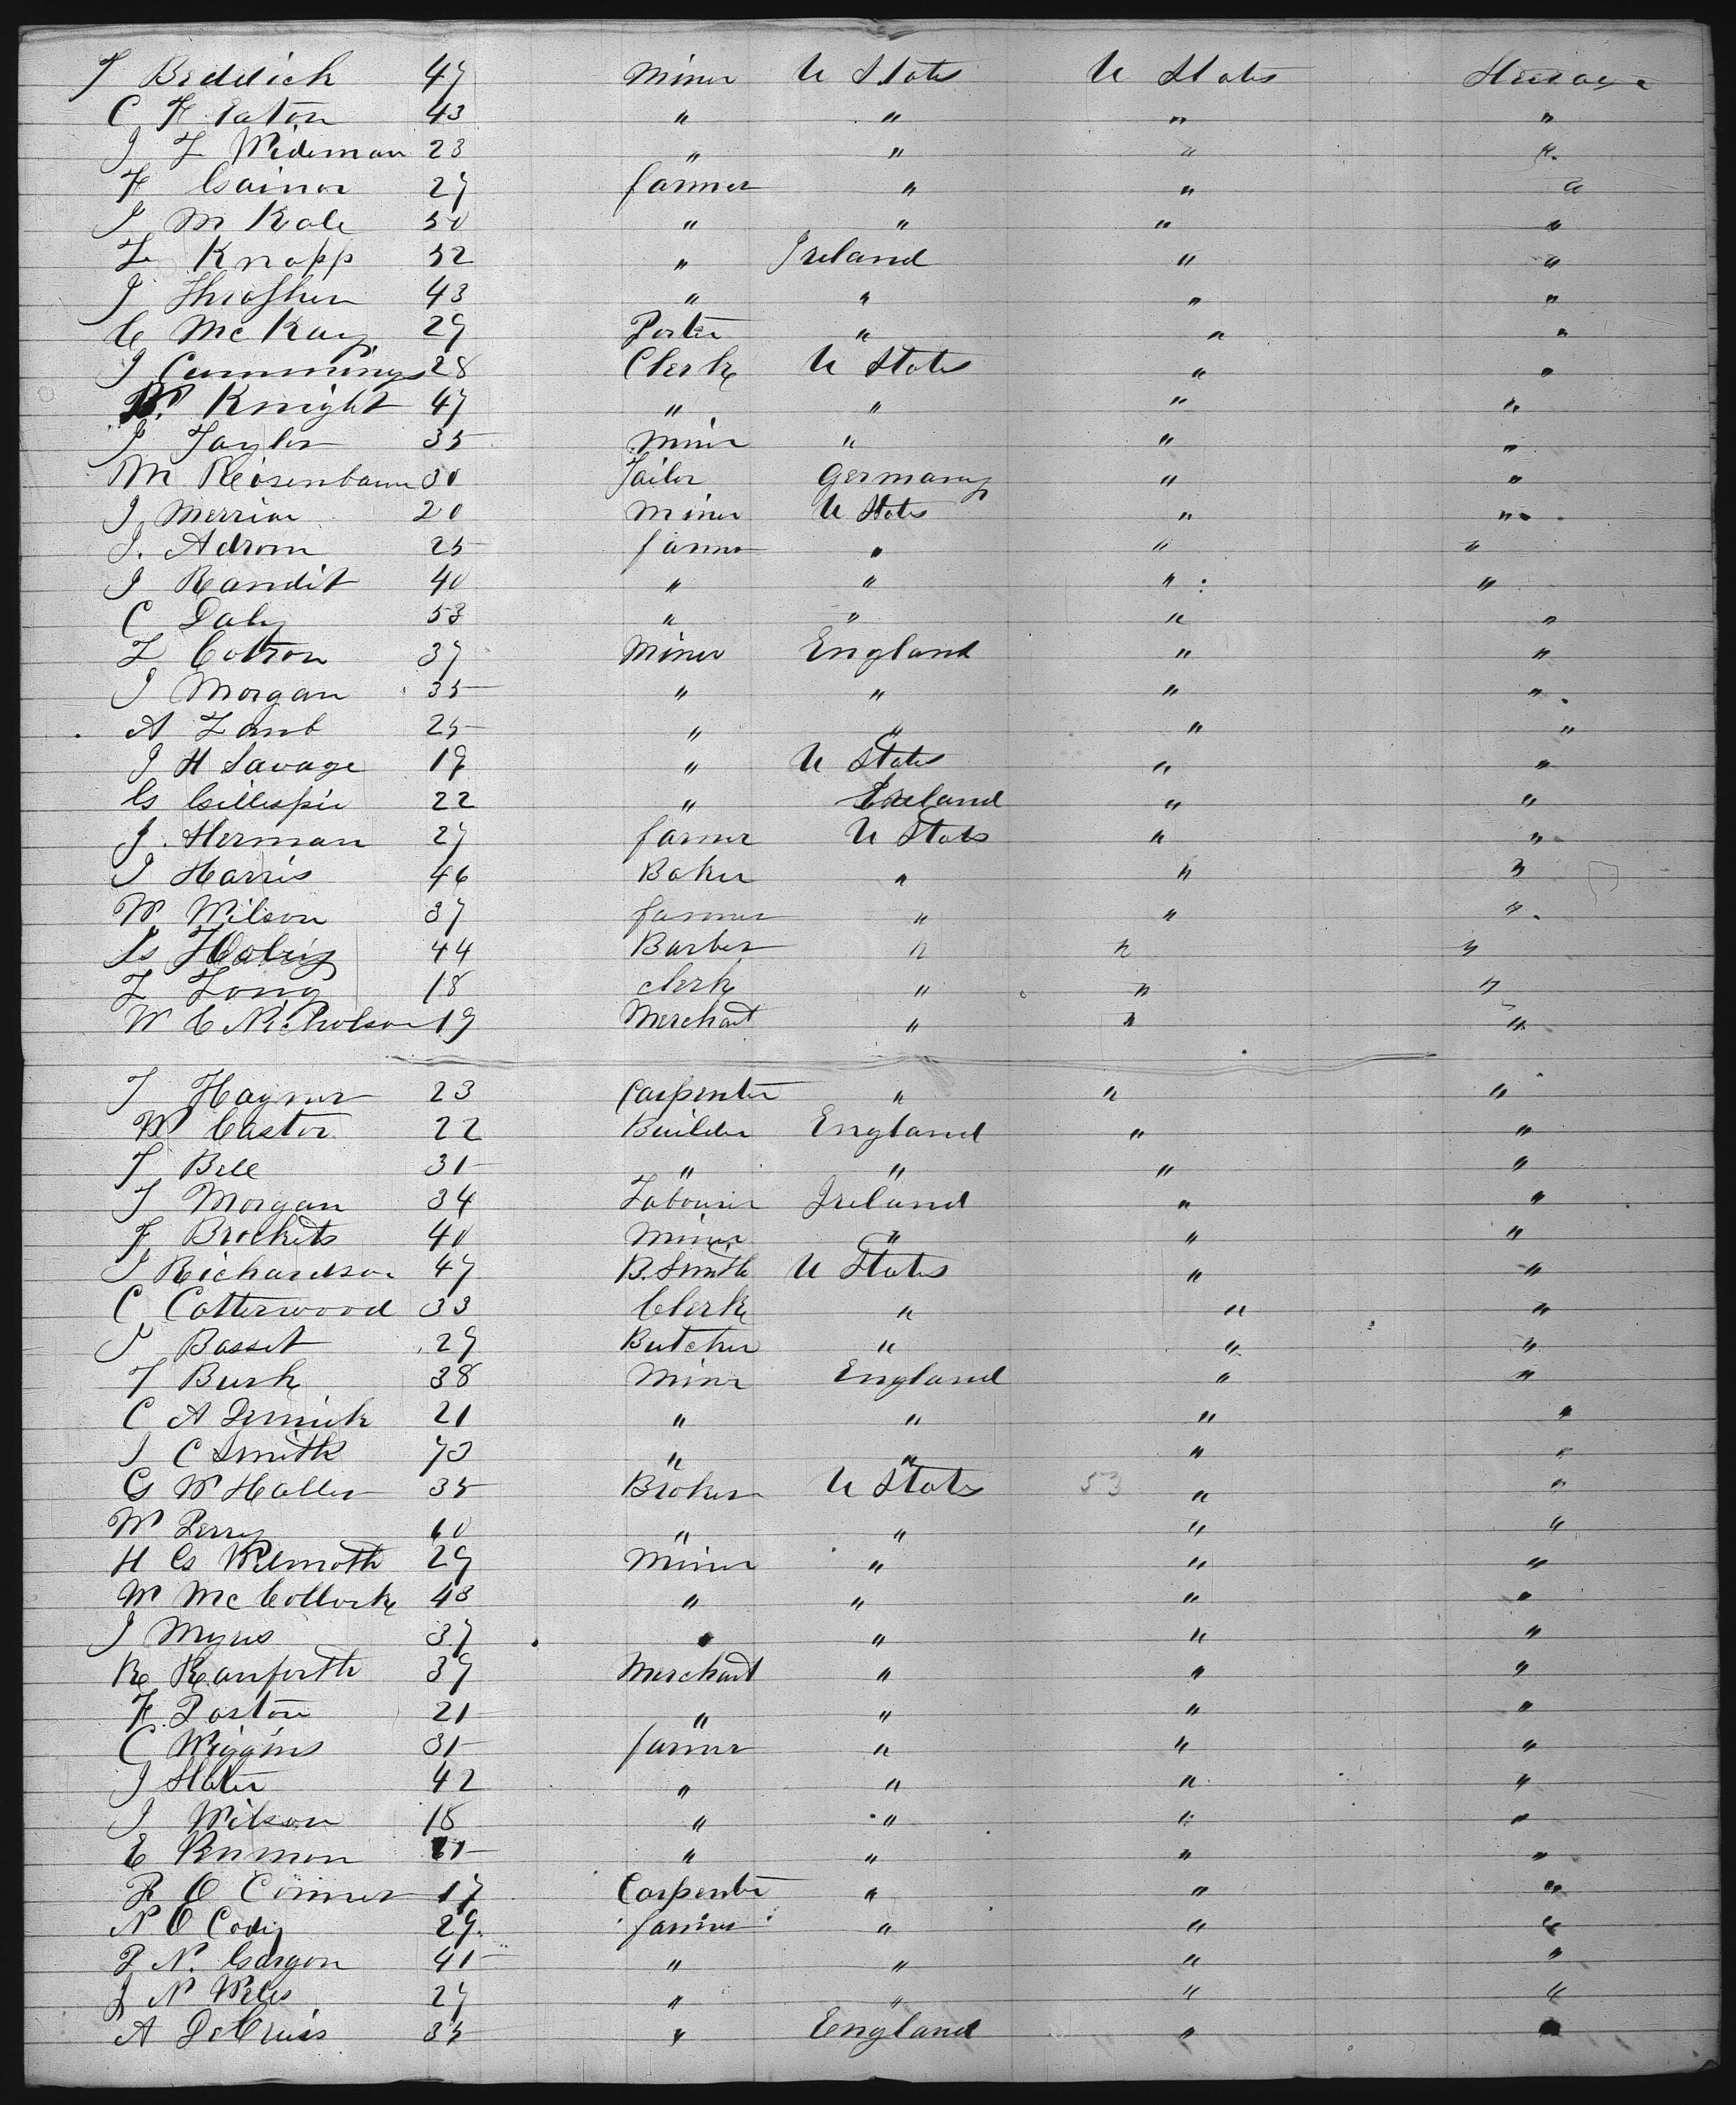 T Breddick 47 Miner U States U States Steerage
C F Eaton 43 " " " "
J L Wideman 23 " " " "
F Gainor 27 farmer " " "
J M Kale 50 " " " "
L Knapp 52 " Ireland " "
J Thrasher 43 " " " "
C McKay 29 Porter " " "
J Cummings 28 Clerk U States " "
W Knight 47 " " " "
J Taylor 35 Miner " " "
M Reisenbaum 30 Tailor Germany " "
J Merrior 20 Miner U States " "
J. Adrom 25 farmer " " "
J Randit 40 " " " "
C Daly 53 " " " "
L Cotron 37 Miner England " "
J Morgan 35 " " " "
A Lamb 25 " " " "
J H Savage 19 " U States " "
G Gillespie 22 " Ireland " "
J. Herman 27 farmer U States " "
J Harris 46 Baker " " "
W Wilson 37 farmer " " "
44 Barber " " "
L Long 18 clerk " " "
W C Nicholson 19 Merchant " " "
T Hayner 23 Carpenter " " "
W Castor 22 Builder England " "
T Bell 31 " " " "
T Morgan 34 Labourer Ireland " "
F Brockets 40 Miner " " "
J Richardson 47 B. Smith U States " "
C Catterwood 33 Clerk " " "
J Basset 29 Butcher " " "
T Burk 38 Miner England " "
C A Diminick 21 " " " "
J C Smith 43 " " " "
G W Haller 35 Broker U States 53 " "
W Perry 60 " " " "
H G Wilmoth 29 Miner " " "
W McCollock 48 " " " "
J Myers 37 " " " "
R Ranforth 39 Merchant " " "
F. Paston 21 " " " "
C Wiggins 31 farmer " " "
J Slater 42 " " " "
J Wilson 18 " " " "
E " " " "
P O Conner 17 Carpenter " " "
N O Cody 29 farmer " " "
P N. Gargon 41 " " " "
J N Wiles 27 " " " "
A DeCruis 35 " England " "